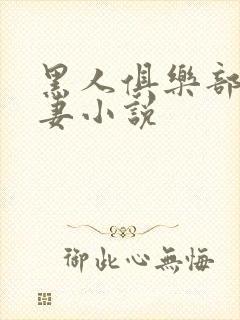 黑人俱樂部
妻小說
御此心無悔